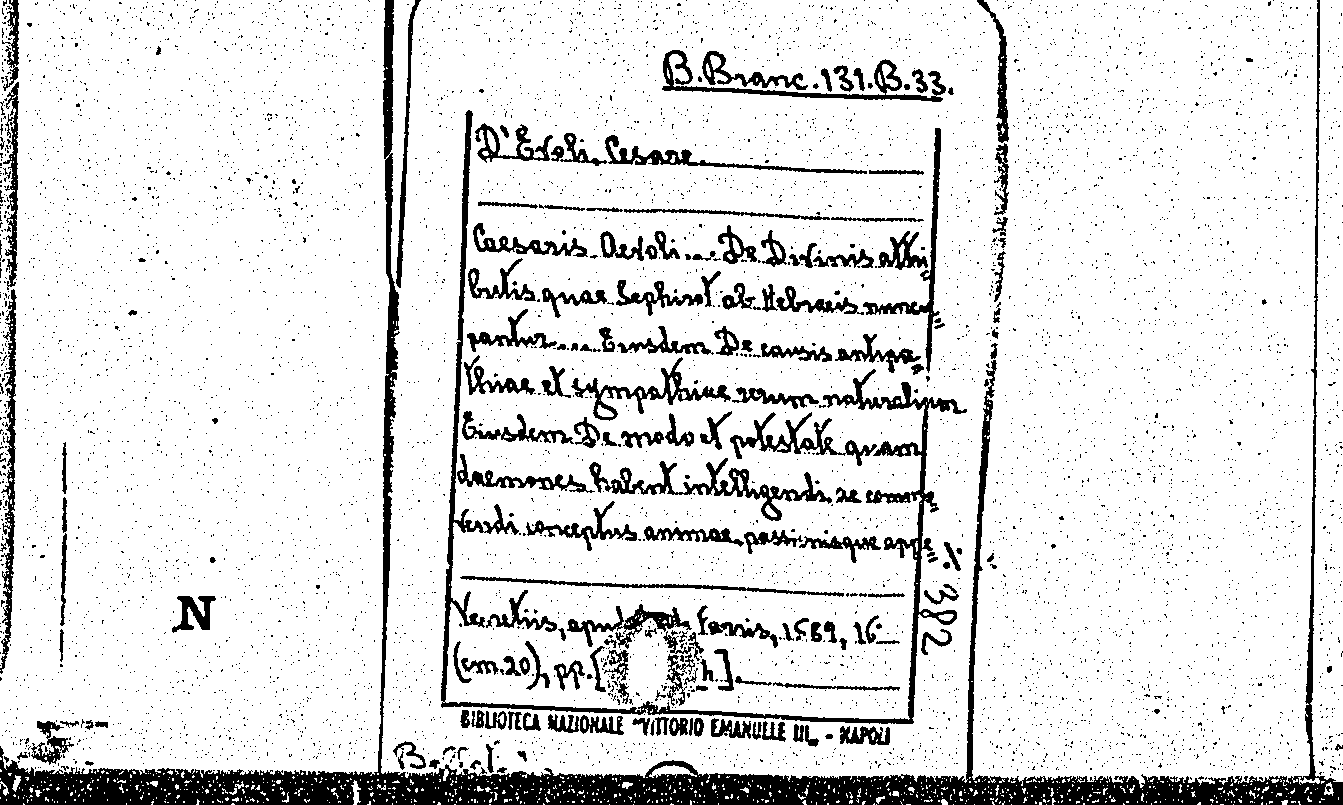 B.Branc.131.B.33.
D'Evoli, Cesare.
Caesaris Aevoli... De Divinis attri=
butis quae Sephirot ab Hebraeis nuncu=
pantur.... Eiusdem De causis antipa=
thiae et sympathiae rerum naturalium
Eiusdem De modo et potestate quam
daemones habent intelligendi, ac commo=
vendi conceptus animae, passionisque appe=
·/· 382
Venetiis, Farris, 1589, 16
(cm.20), pp.[ h].
N
BIBLIOTECA NAZIONALE "VITTORIO EMANUELLE III„ - NAPOLI